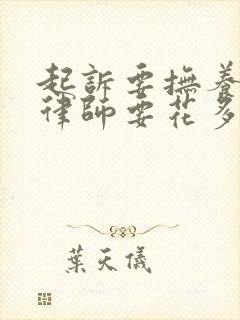 起訴要撫養
律師要花多
葉天儀